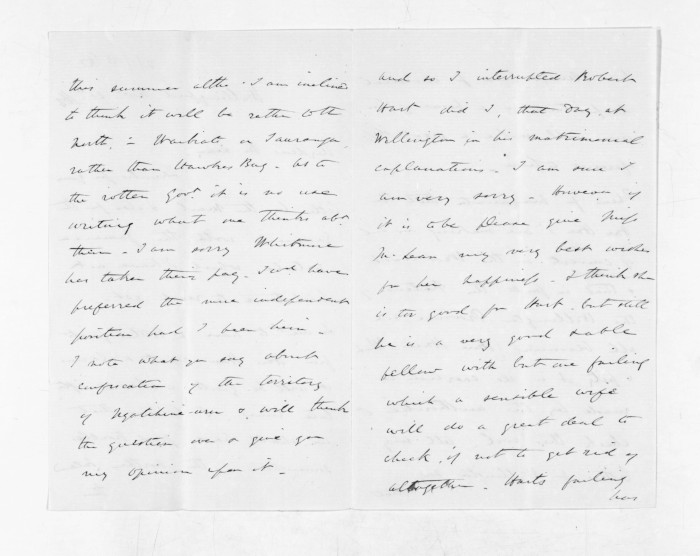 this summer altho' I am inclined
to think it will be rather to the
North, in Waikato or Tauranga
rather than Hawkes Bay. As to
the rotten Govt it is no use
writing what one thinks abt
them. I am sorry Whitmore
has taken their pay. I wd have
preferred the more independent
position had I been him.
I note what you say about
confiscation of the territory
of & will think
the question over & give you
my opinion upon it.
and so I interrupted Robert
Hart did I, that day at
Wellington in his matrimonial
explanations. I am sure I
am very sorry. However if
it is to be please give Miss
McLean my very best wishes
for her happiness. I think she
is too good for Hart, but still
he is a very good stable
fellow with but one failing
which a sensible wife
will do a great deal to
check, if not to get rid of
altogether. Harts failing
has